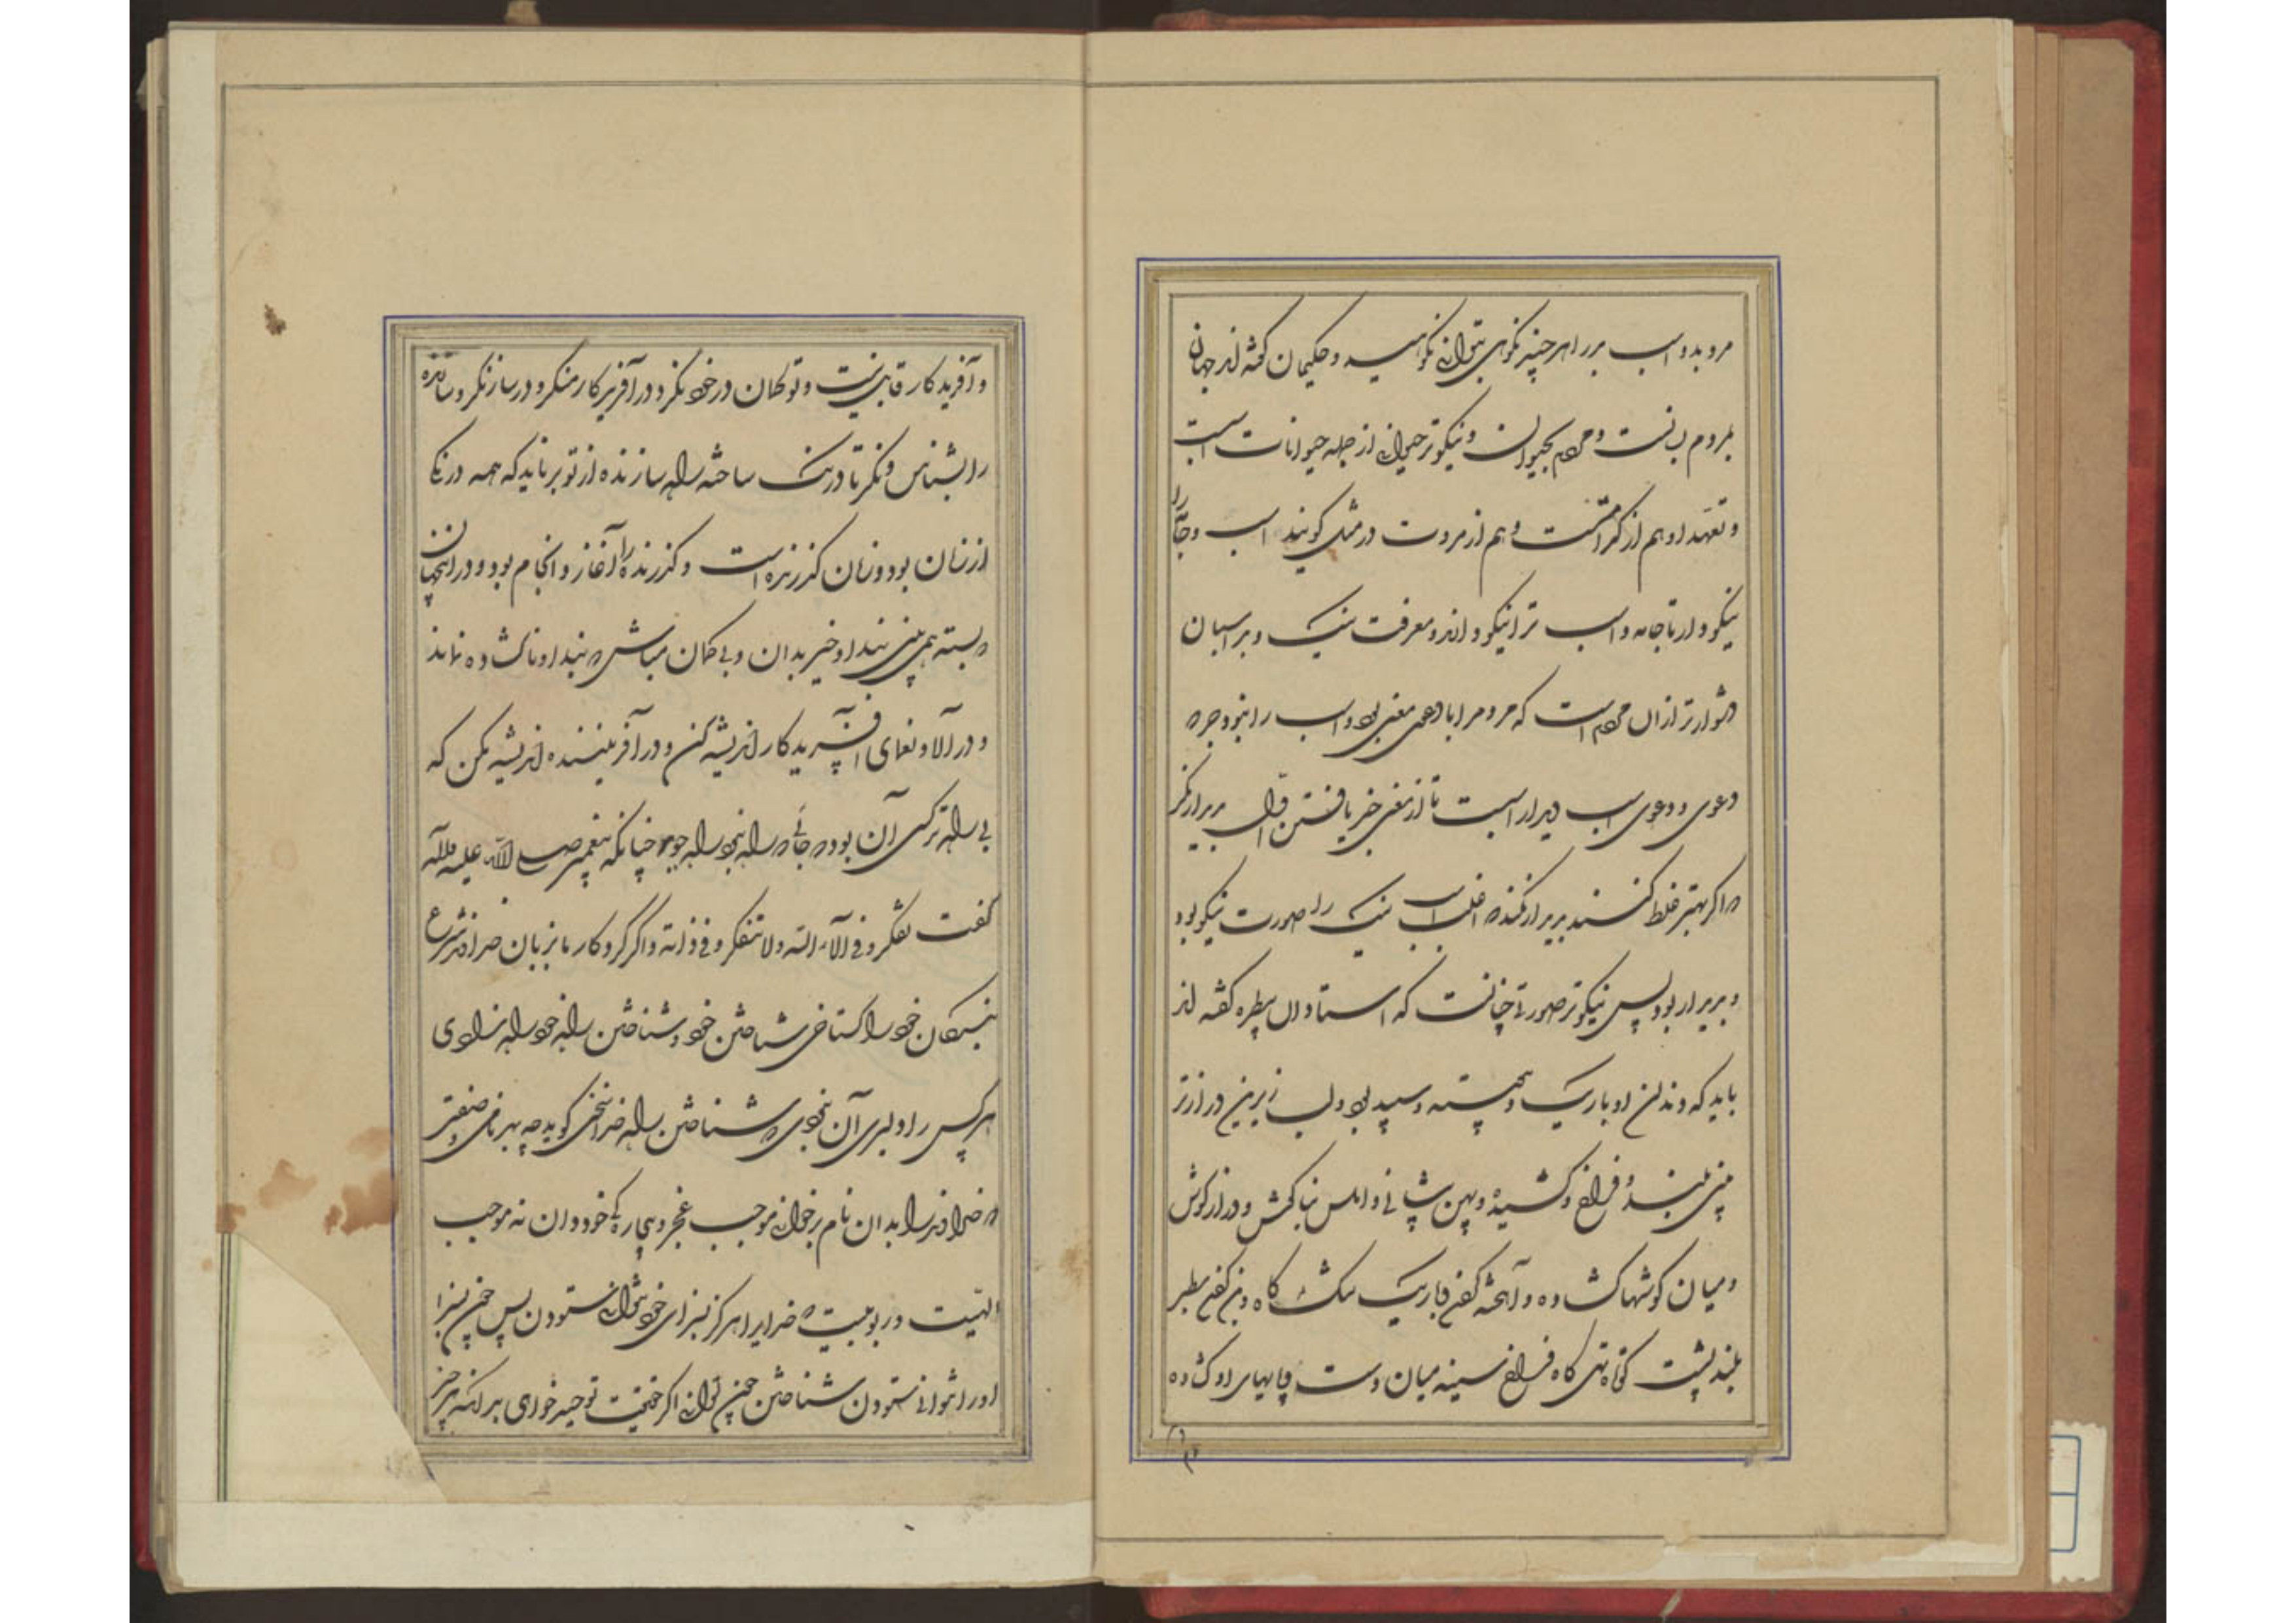 مرو بد و اسب بد را هر چند نکوهی بتوان نکوهید و حکیمان گفته‌اند جهان
بمردم بپاست و مردم بحیوان و نیکوتر حیوانی از جمله حیوانات اسب است
و تعهد او هم از کدخداییست و هم از مروت در مثل گویند اسب و جامه را
نیکو دار تا جامه و اسب ترا نیکو دارند و معرفت نیک و بد اسبان
دشوارتر از آن مردم است که مردم را با دعوی معنی بود و اسب را نبود جز
دعوی و دعوی اسب دیدار است تا از معنی خبر یافتن اول بدیدار نگر
که اگر بهنر غلط کنند بدیدار نکنند که اغلب اسب نیک را صورت نیکو بود
و بد دیدار بود پس نیکوتر صورتی چنانست که استادان بیطره گفته‌اند
باید که دندان او باریک و پیوسته و سپید بود و لب زیرین درازتر
بینی بلند و فراخ و کشیده و پهن پیشانی و املس بناگوش و دراز گوش
و میان گوشها گشاده و آهخته گفن و باریک تنگ‌گاه و بن گفن سطبر
بلند پشت کوتاه تهی‌گاه فراخ سینه میان دست و پایهای او گشاده
و آفریدگار قابل نیست و تو بگمان در خود نگر و در آفریدگار منگر و در ساز نگر و سازنده
را بشناس و نگر تا درنگ ساخته راه سازنده از تو برناید که همه درنگی
از زمان بود و زمان گذرنده است و گذرنده را آغاز و انجام بود و در این جهان
که بسته همی بینی بند او خیره بدان و بی گمان مباش که بند او ناگشاده نماند
و در آلاء و نعمای آفریدگار اندیشه کن و در آفریننده اندیشه مکن که
بی راه‌تر کسی آن بود که جایی که راه نبود راه جوید چنانکه پیغمبر صلی الله علیه و آله
گفت تفکروا فی آلاء الله و لا تتفکروا فی ذاته و اگر کردگار ما بزبان صاحب شرع
بندگان خود را گستاخی شناختن خود و شناختن راه خود راه ندادی
هر کس را دلیری آن نبودی که در شناختن راه خدا سخن گوید چه بهر نامی و صفتی
که خدا را بدان نام برخوانی موجب عجز و بیچارگی خود دان نه موجب
الهیت و ربوبیت که خدا را هرگز بسزای خود نتوانی ستودن پس چون بسزا
او را نتوانی ستودن شناختن چون توانی اگر حقیقت توحید خواهی بدانکه هر چیز